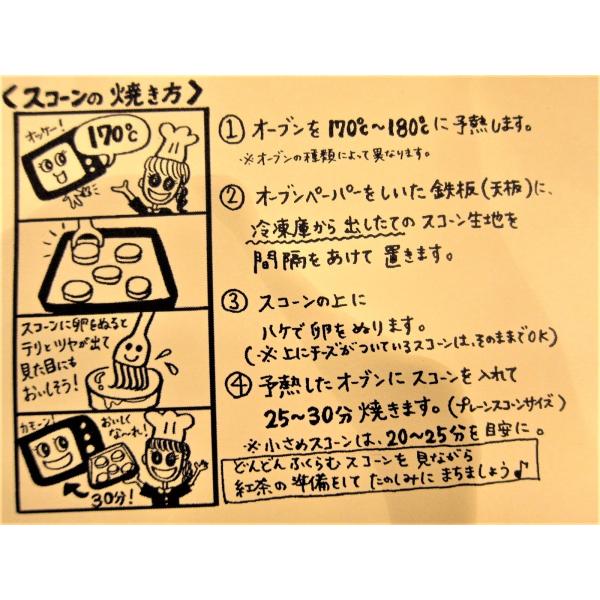 〈スコーンの焼き方〉
オッケー！
170℃
スコーンに卵をぬると
テリとツヤが出て
見た目にも
おいしそう！
カモーン！
おいしく
な〜れ！
30分！
① オーブンを170℃〜180℃に予熱します。
※オーブンの種類によって異なります。
② オーブンペーパーをしいた鉄板(天板)に、
冷凍庫から出したてのスコーン生地を
間隔をあけて置きます。
③ スコーンの上に
ハケで卵をぬります。
(※上にチーズがついているスコーンは、そのままでOK)
④ 予熱したオーブンにスコーンを入れて
25〜30分焼きます。(プレーンスコーンサイズ)
※小さめスコーンは、20〜25分を目安に。
どんどんふくらむスコーンを見ながら
紅茶の準備をしてたのしみにまちましょう♪